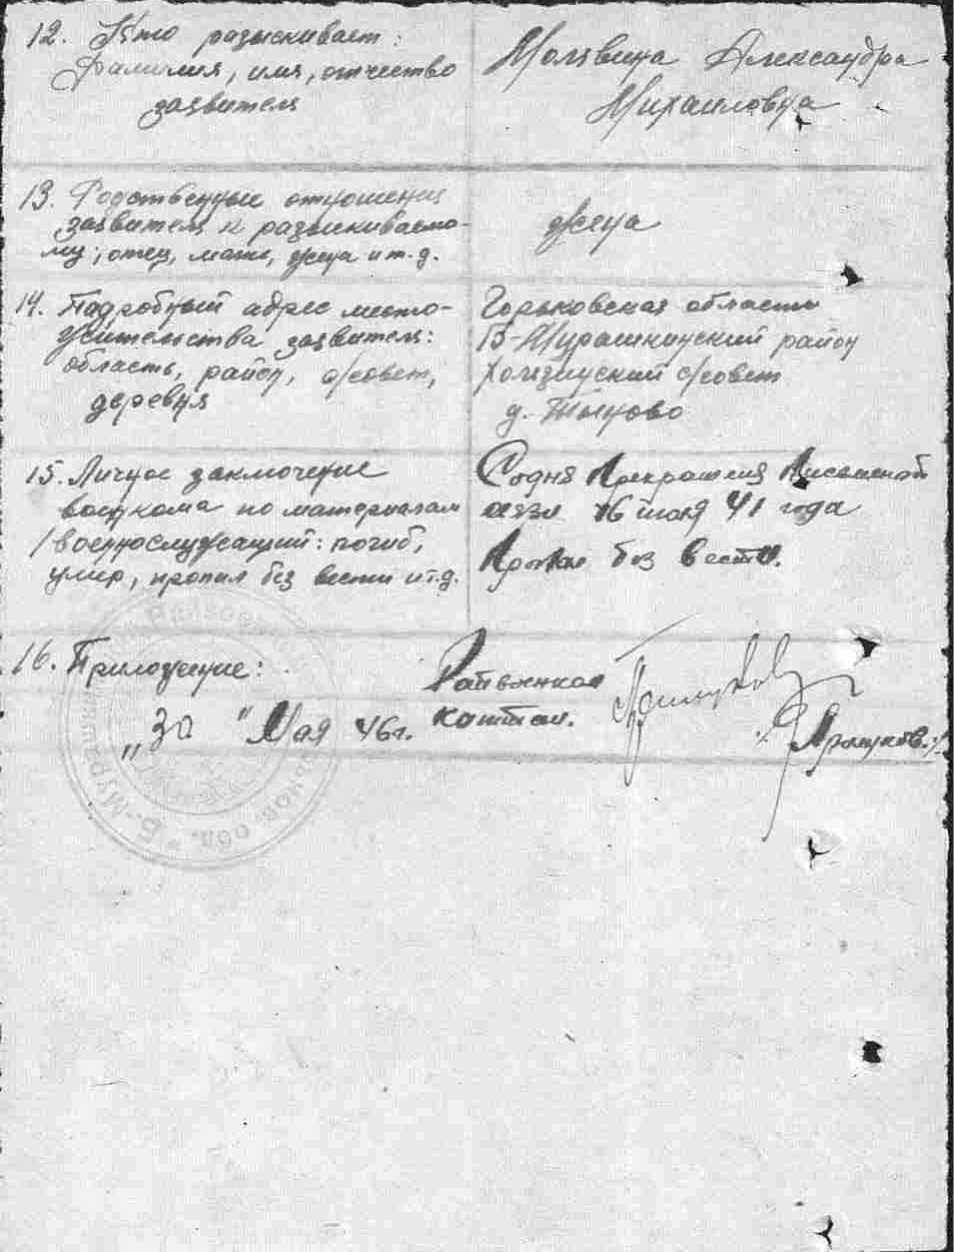 12. Кто разыскивает:
фамилия, имя, отчество
заявителя
Молявина Александра
Михаиловна
13. Родственные отношения
заявителя к разыскиваемо-
му; отец, мать, жена и т. д.
жена
14. Падробный адрес место-
жительства заявителя:
область, район, с/совет,
деревня
Горьковская область
Б-Мурашкинский район
Холязинский с/совет
д. Тыново
15. Личное заключение
военкома по материалам
/военнослужащий: погиб,
умир, пропал без вести и т.д.
Содня Прекрашения Писменной
16 июля 41 года
Пропал без вести.
16. Приложение:
"30" Мая 46 г.
Райвоенком
капитан.